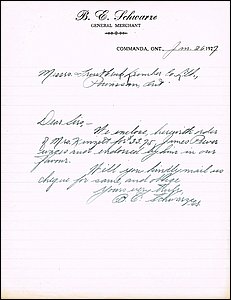 B. E. Schwarze
GENERAL MERCHANT
COMMANDA, ONT., Jan. 26 1927
Messrs. Lumber Co Ltd,
Ont.
Dear Sirs,—
We enclose herewith order
of Mrs. for 22.75 James
and endorsed by him in our
favour.
Will you kindly mail us
cheque for same, and oblige
Yours very truly
B. E. Schwarze